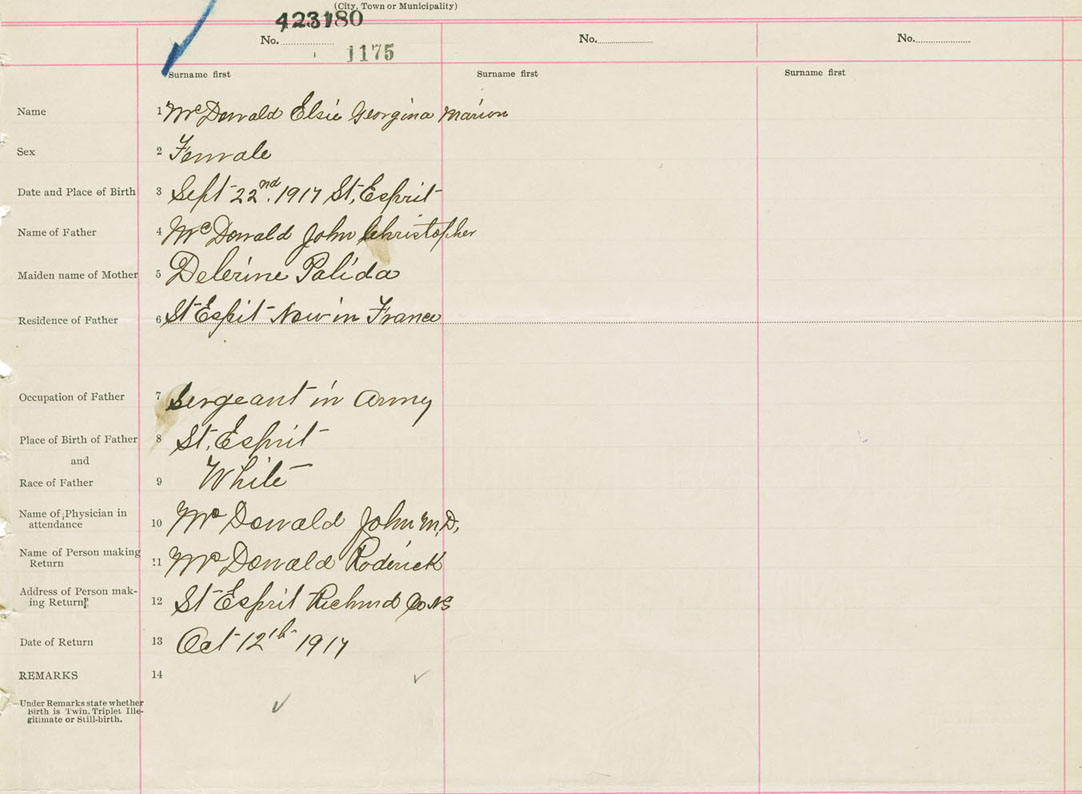 (City, Town or Municipality)
423180
No. No. No.
1175
Surname first Surname first Surname first
Name 1 McDonald Elsie Georgina Marion
Sex 2 Female
Date and Place of Birth 3 Sept 22nd. 1917 St. Esprit
Name of Father 4 McDonald John Christopher
Maiden name of Mother 5 Delerine Palida
Residence of Father 6 St Espit Now in France
Occupation of Father 7 Sergeant in Army
Place of Birth of Father 8 St. Esprit
and
Race of Father 9 White
Name of Physician in
attendance 10 McDonald John M.D.
Name of Person making
Return 11 McDonald Roderick
Address of Person mak-
ing Return 12 St Esprit Richmd Co NS
Date of Return 13 Oct 12th 1917
REMARKS 14
Under Remarks state whether
Birth is Twin. Triplet Ille-
gitimate or Still-birth.